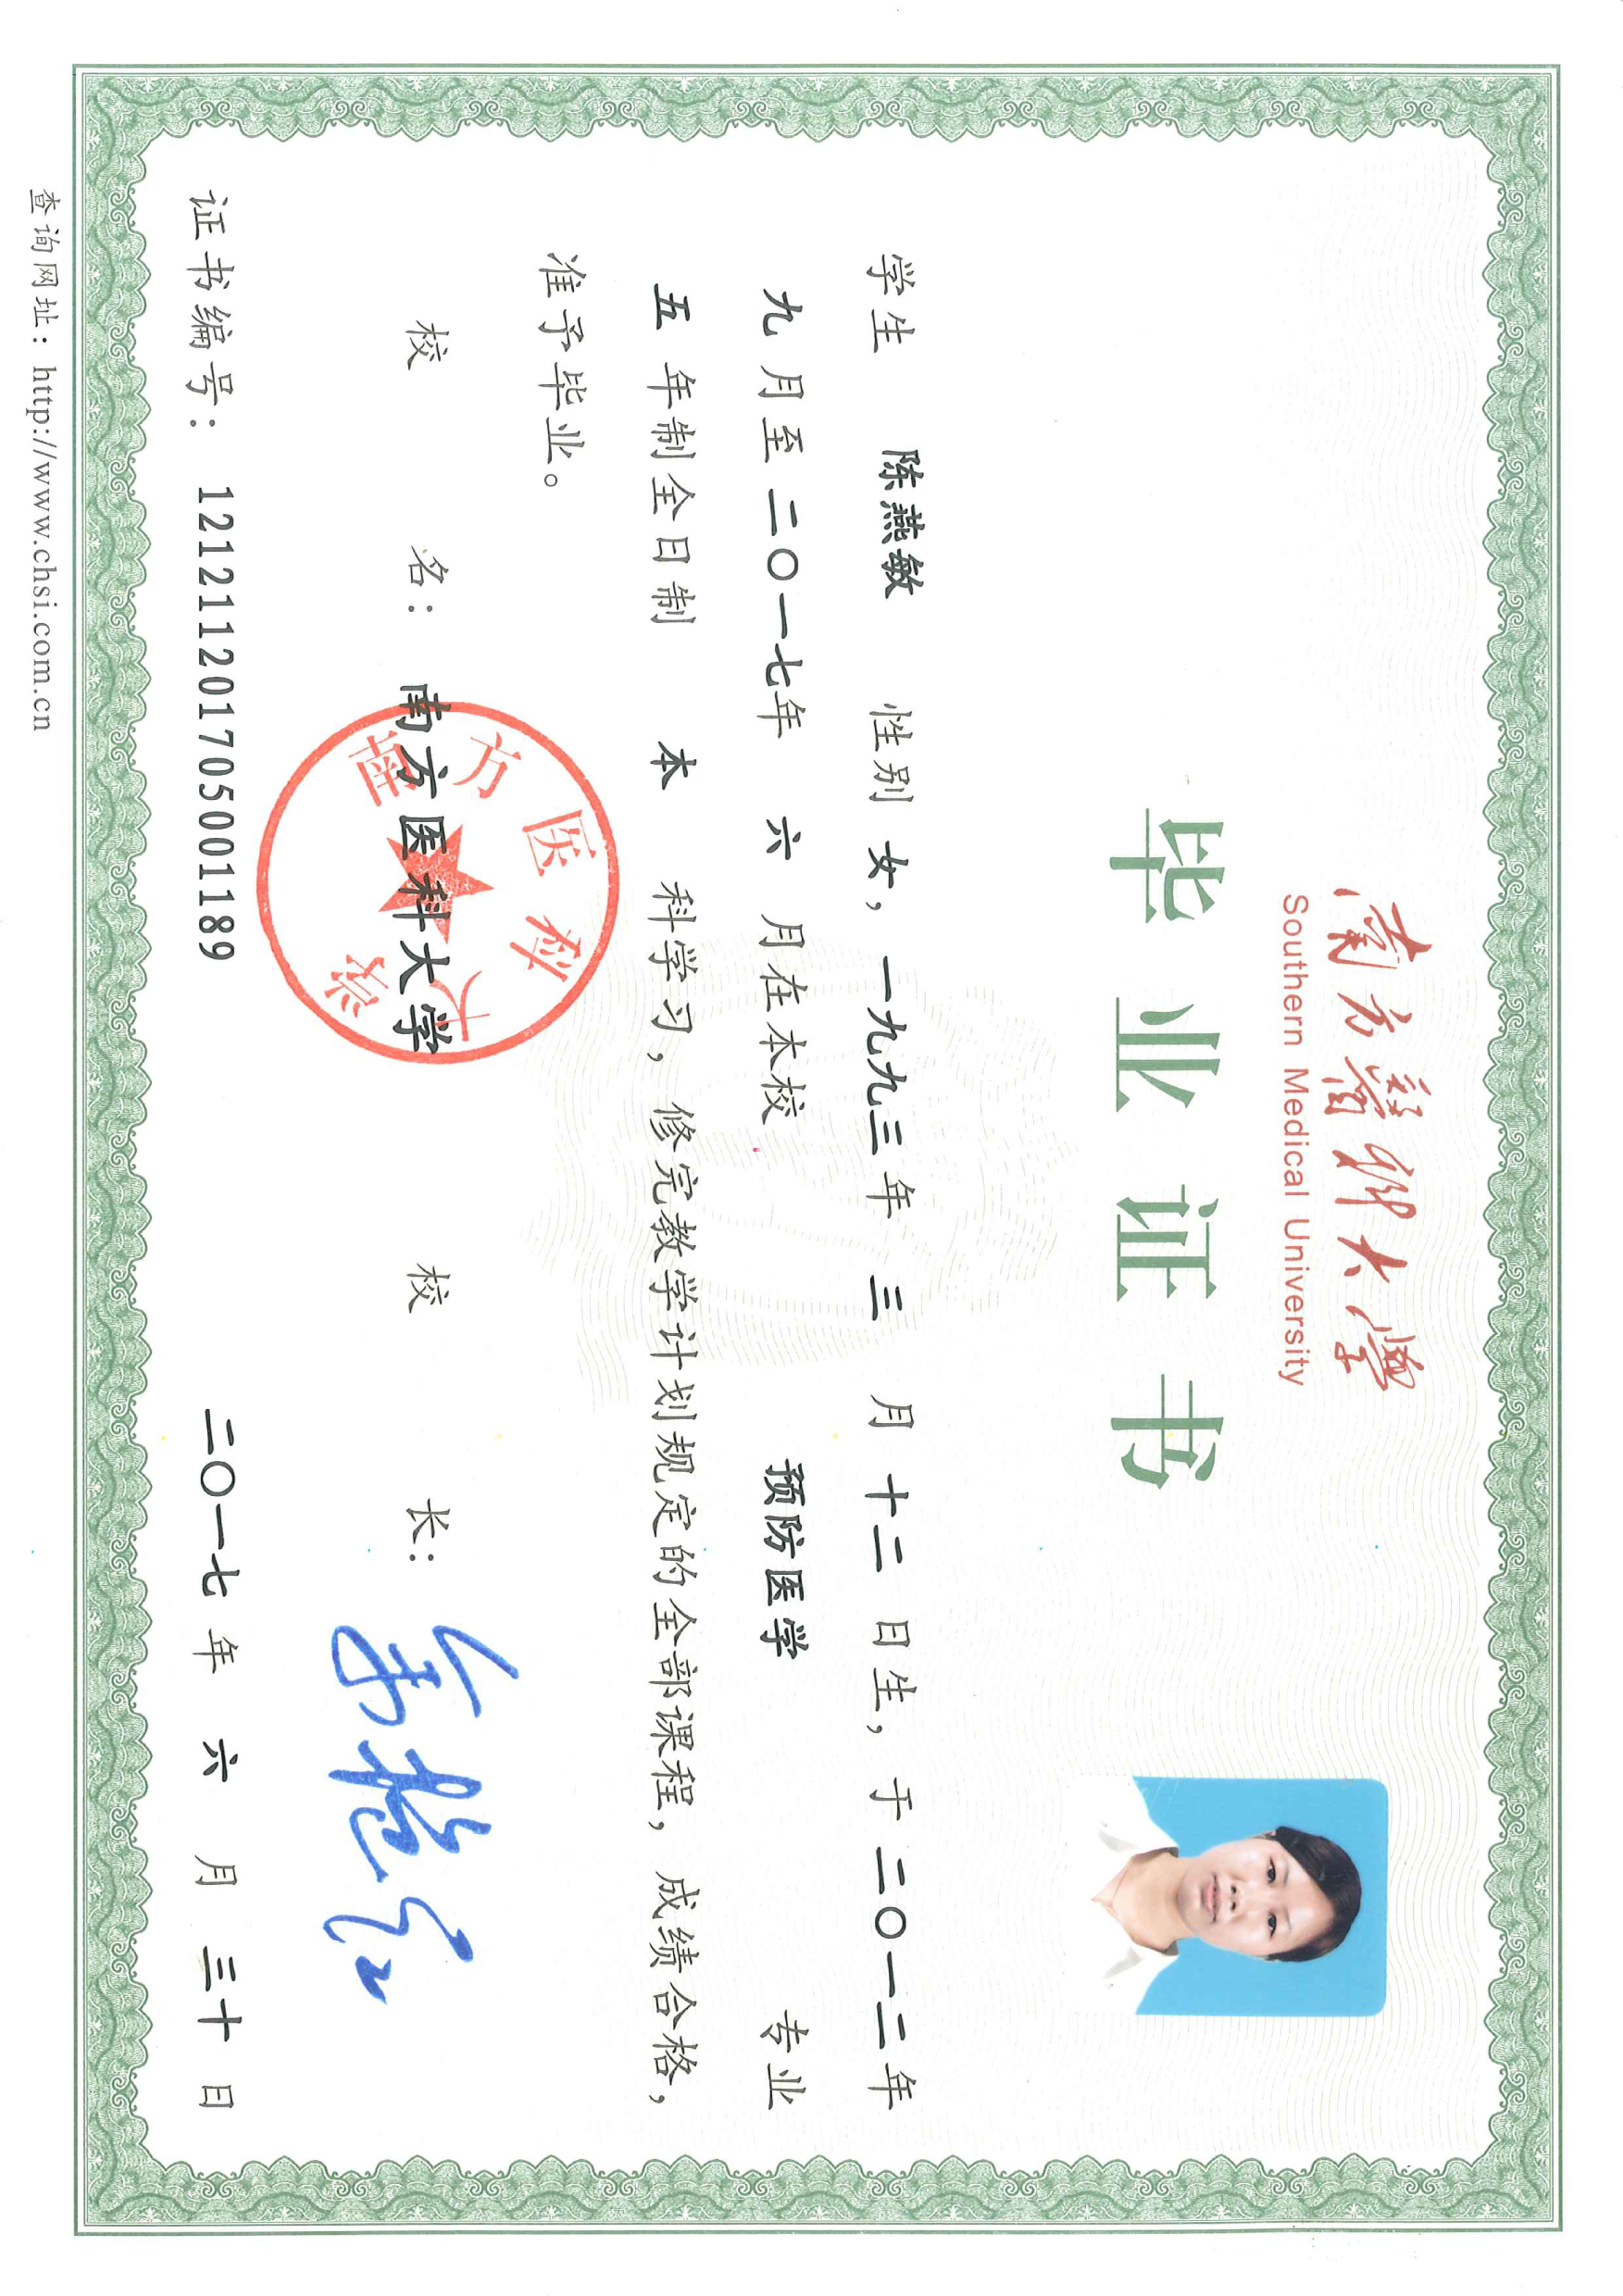 南方醫科大学
Southern Medical University
毕业证书
学生 陈燕敏 性别 女，一九九三年 三 月 十二 日生，于 二〇一二年
九 月至 二〇一七年 六 月在本校 预防医学 专业
五 年制全日制 本 科学习，修完教学计划规定的全部课程，成绩合格，
准予毕业。
校 名：南方医科大学 校 长：
南方医科大学
证书编号：121211201705001189 二〇一七 年 六 月 三十 日
查询网址：http://www.chsi.com.cn